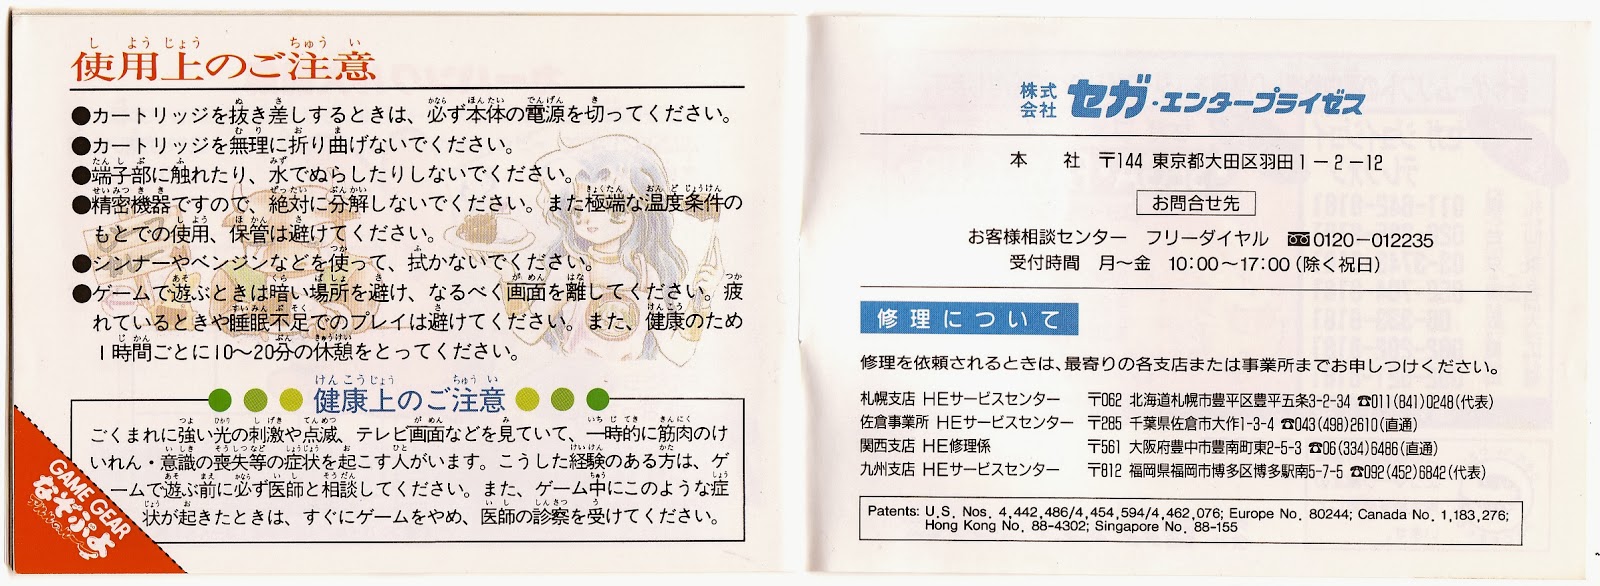 使用上のご注意
●カートリッジを抜き差しするときは、必ず本体の電源を切ってください。
●カートリッジを無理に折り曲げないでください。
●端子部に触れたり、水でぬらしたりしないでください。
●精密機器ですので、絶対に分解しないでください。また極端な温度条件の
もとでの使用、保管は避けてください。
●シンナーやベンジンなどを使って、拭かないでください。
●ゲームで遊ぶときは暗い場所を避け、なるべく画面を離してください。疲
れているときや睡眠不足でのプレイは避けてください。また、健康のため
1時間ごとに10〜20分の休憩をとってください。
健康上のご注意
ごくまれに強い光の刺激や点滅、テレビ画面などを見ていて、一時的に筋肉のけ
いれん・意識の喪失等の症状を起こす人がいます。こうした経験のある方は、ゲ
ームで遊ぶ前に必ず医師と相談してください。また、ゲーム中にこのような症
状が起きたときは、すぐにゲームをやめ、医師の診察を受けてください。
GAME GEAR
なぞぷよ
株式会社 セガ・エンタープライゼス
本 社 〒144 東京都大田区羽田1-2-12
お問合せ先
お客様相談センター フリーダイヤル 0120-012235
受付時間 月〜金 10:00〜17:00(除く祝日)
修理について
修理を依頼されるときは、最寄りの各支店または事業所までお申しつけください。
札幌支店 HEサービスセンター 〒062 北海道札幌市豊平区豊平五条3-2-34 ☎011(841)0248(代表)
佐倉事業所 HEサービスセンター 〒285 千葉県佐倉市大作1-3-4 ☎043(498)2610(直通)
関西支店 HE修理係 〒561 大阪府豊中市豊南町東2-5-3 ☎06(334)6486(直通)
九州支店 HEサービスセンター 〒812 福岡県福岡市博多区博多駅南5-7-5 ☎092(452)6842(代表)
Patents: U.S. Nos. 4,442,486/4,454,594/4,462,076; Europe No. 80244; Canada No. 1,183,276;
Hong Kong No. 88-4302; Singapore No. 88-155